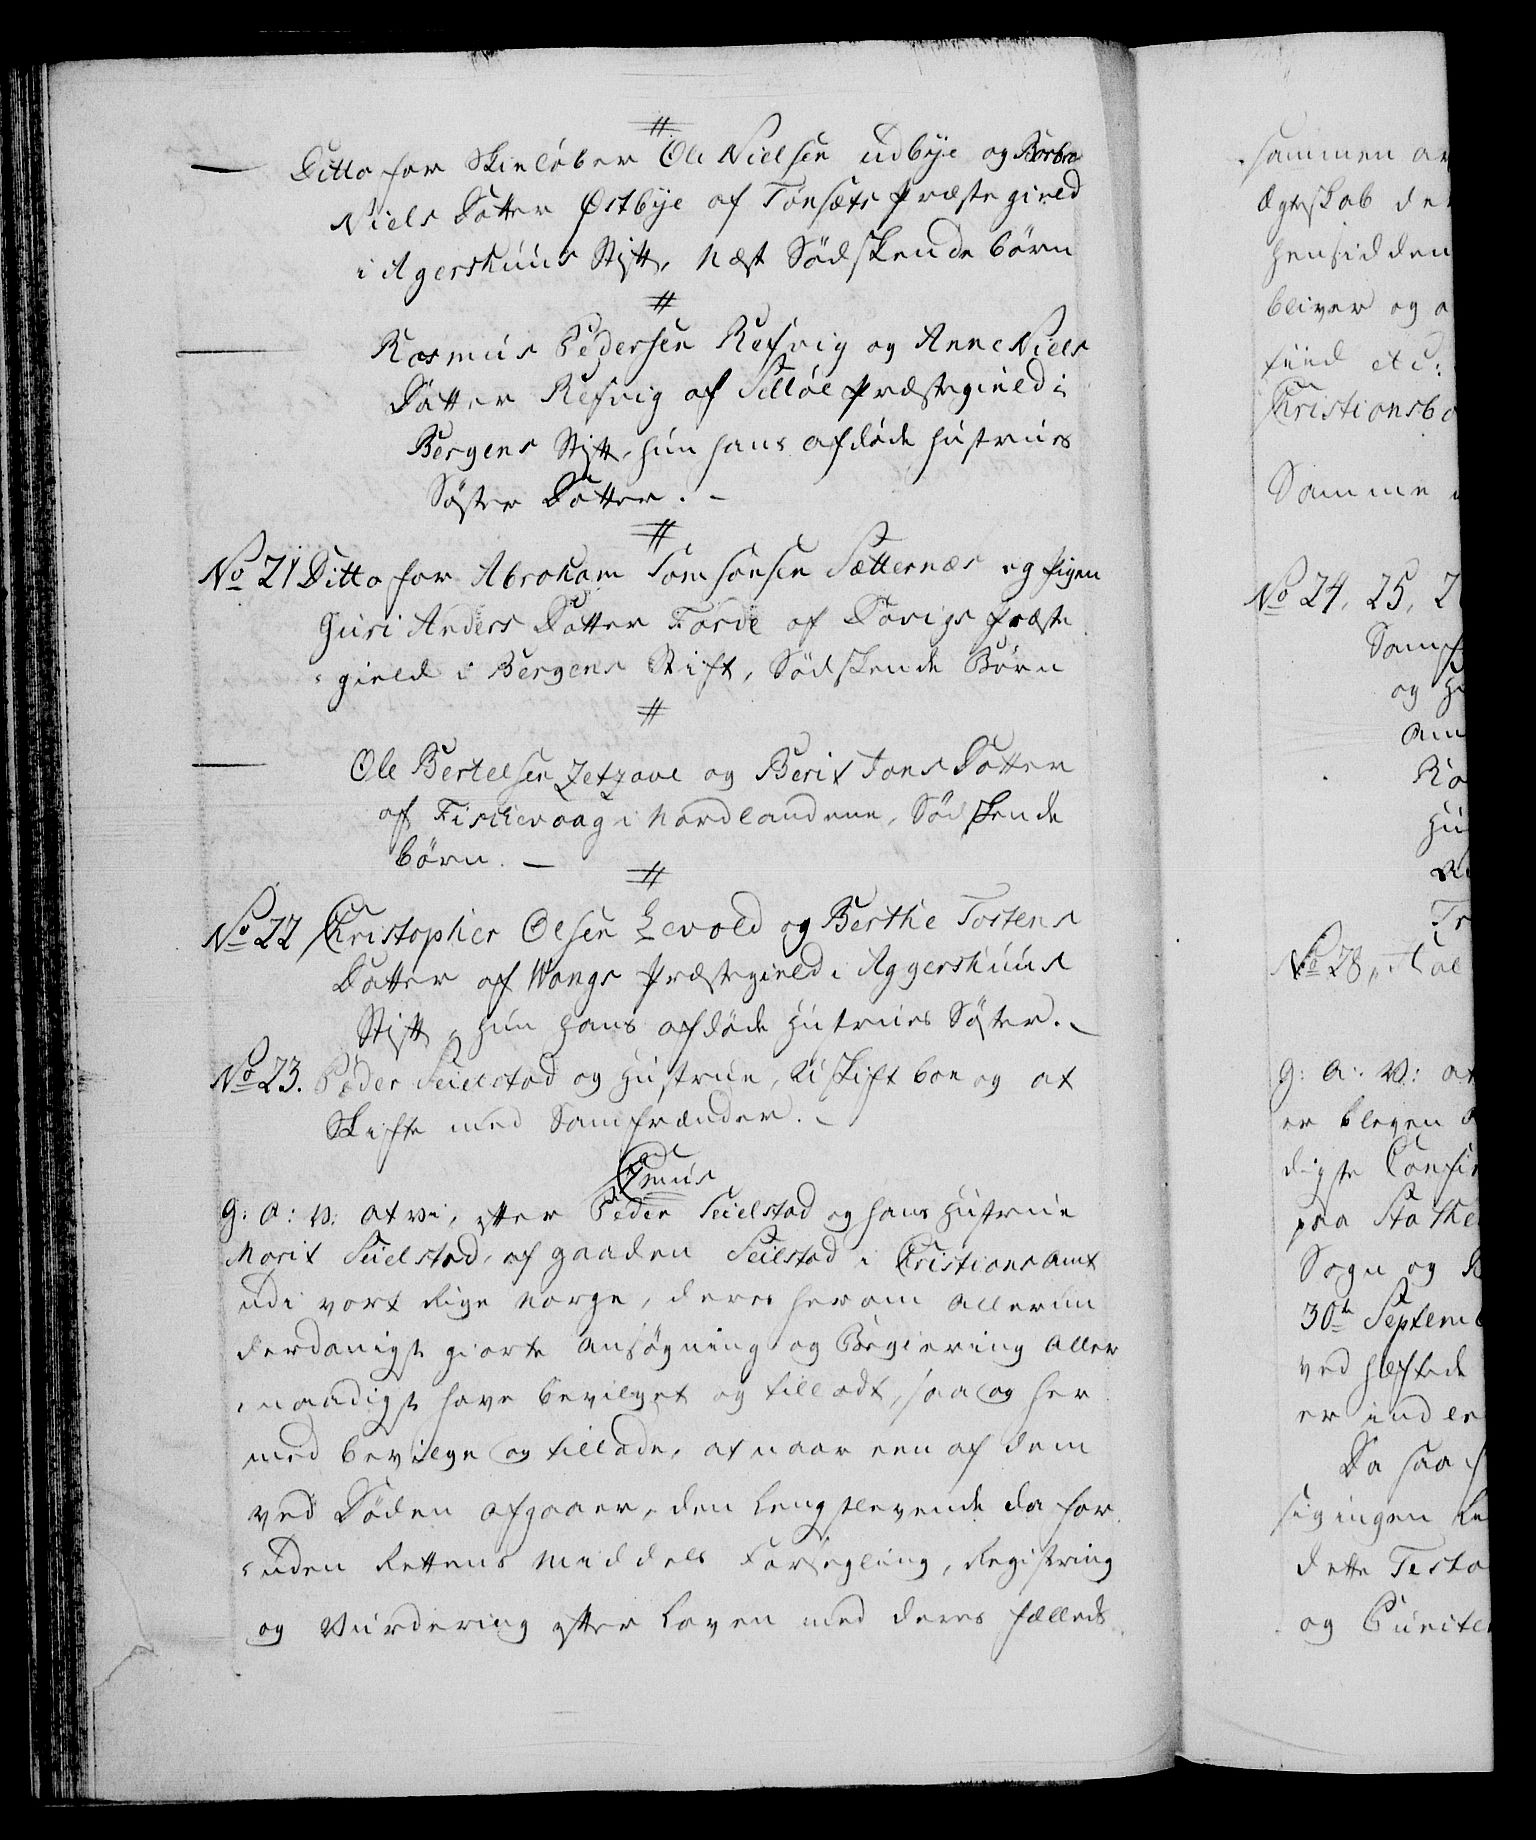 #
— Ditto for Skieløber Ole Nielsen Udbÿe og Barbra
Niels Datter Østbÿe af Tønsæts Præstegield
i Agershuus Stift, Næst Södskende börn
#
— Rasmus Pedersen Refvig og Anne Niels
Datter Refvig af Selløe Præstegield i
Bergens Stift, hun hans afdöde Hustrues
Söster Datter. –
#
No 21 Ditto for Abraham Samsonsen Sætternæs og Pigen
Guri Anders Datter Förde af Davigs Præste
gield i Bergens Stift, Södskende Börn
#
— Ole Bertelsen og Berit Jons Datter
af Fischevaag i Nordlandene, Södskende
börn. –
#
No 22 Christopher Olsen Levold og Berthe Tostens
Datter af Wangs Præstegield i Aggershuus
Stift, hun hans afdöde Hustrues Söster. –
No 23. Peder Seielstad og Hustrue, Uskift boe og at
Skifte med Samfrænder. –
G: A: V: at vi, efter Peder Seielstad og hans Hustrue
Marit Seielstad, af gaarden Seilstad i Christians Amt
udi vort Rige Norge, deres herom allerun
derdanigst giorte Ansögning og Begiering Aller
naadigst have bevilget og tilladt, saa og her
med bevilge og tillade, at naar een af dem
ved Döden afgaaer, den Længstlevende da for
uden Rettens Middels Forsegling, Registring
og Vurdering efter Loven med deres fælleds
sammen
Ægteskab
hensidden
bliver og
fuld etc:
Samme
No 24, 25,
og
No 28,
G: A: V: at
er bleven
digste
paa
Sogn og
30te
ved hæftede
er
Da saa
sig ingen
dette
og